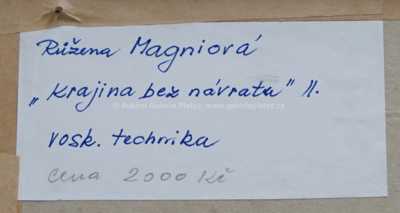 Růžena Magniová
„Krajina bez návratu" II.
© Aukční Galerie Platýz, www.galerieplatyz.cz
vosk. technika
cena 2000 Kč